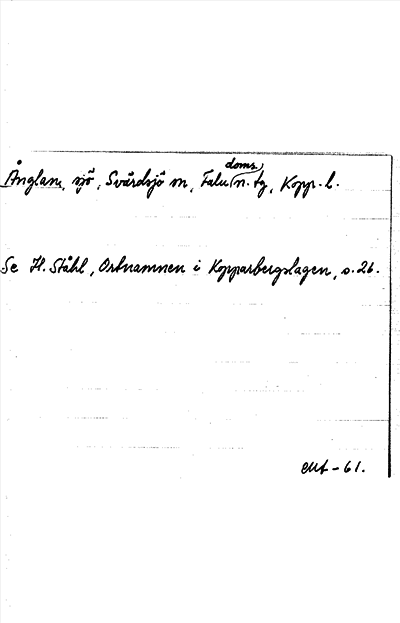 Ånglam, sjö, Svärdsjö sn, Falu doms, n. tg, Kopp. l.
Se H. Ståhl, Ortnamnen i Kopparbergslagen, s. 26.
-61.